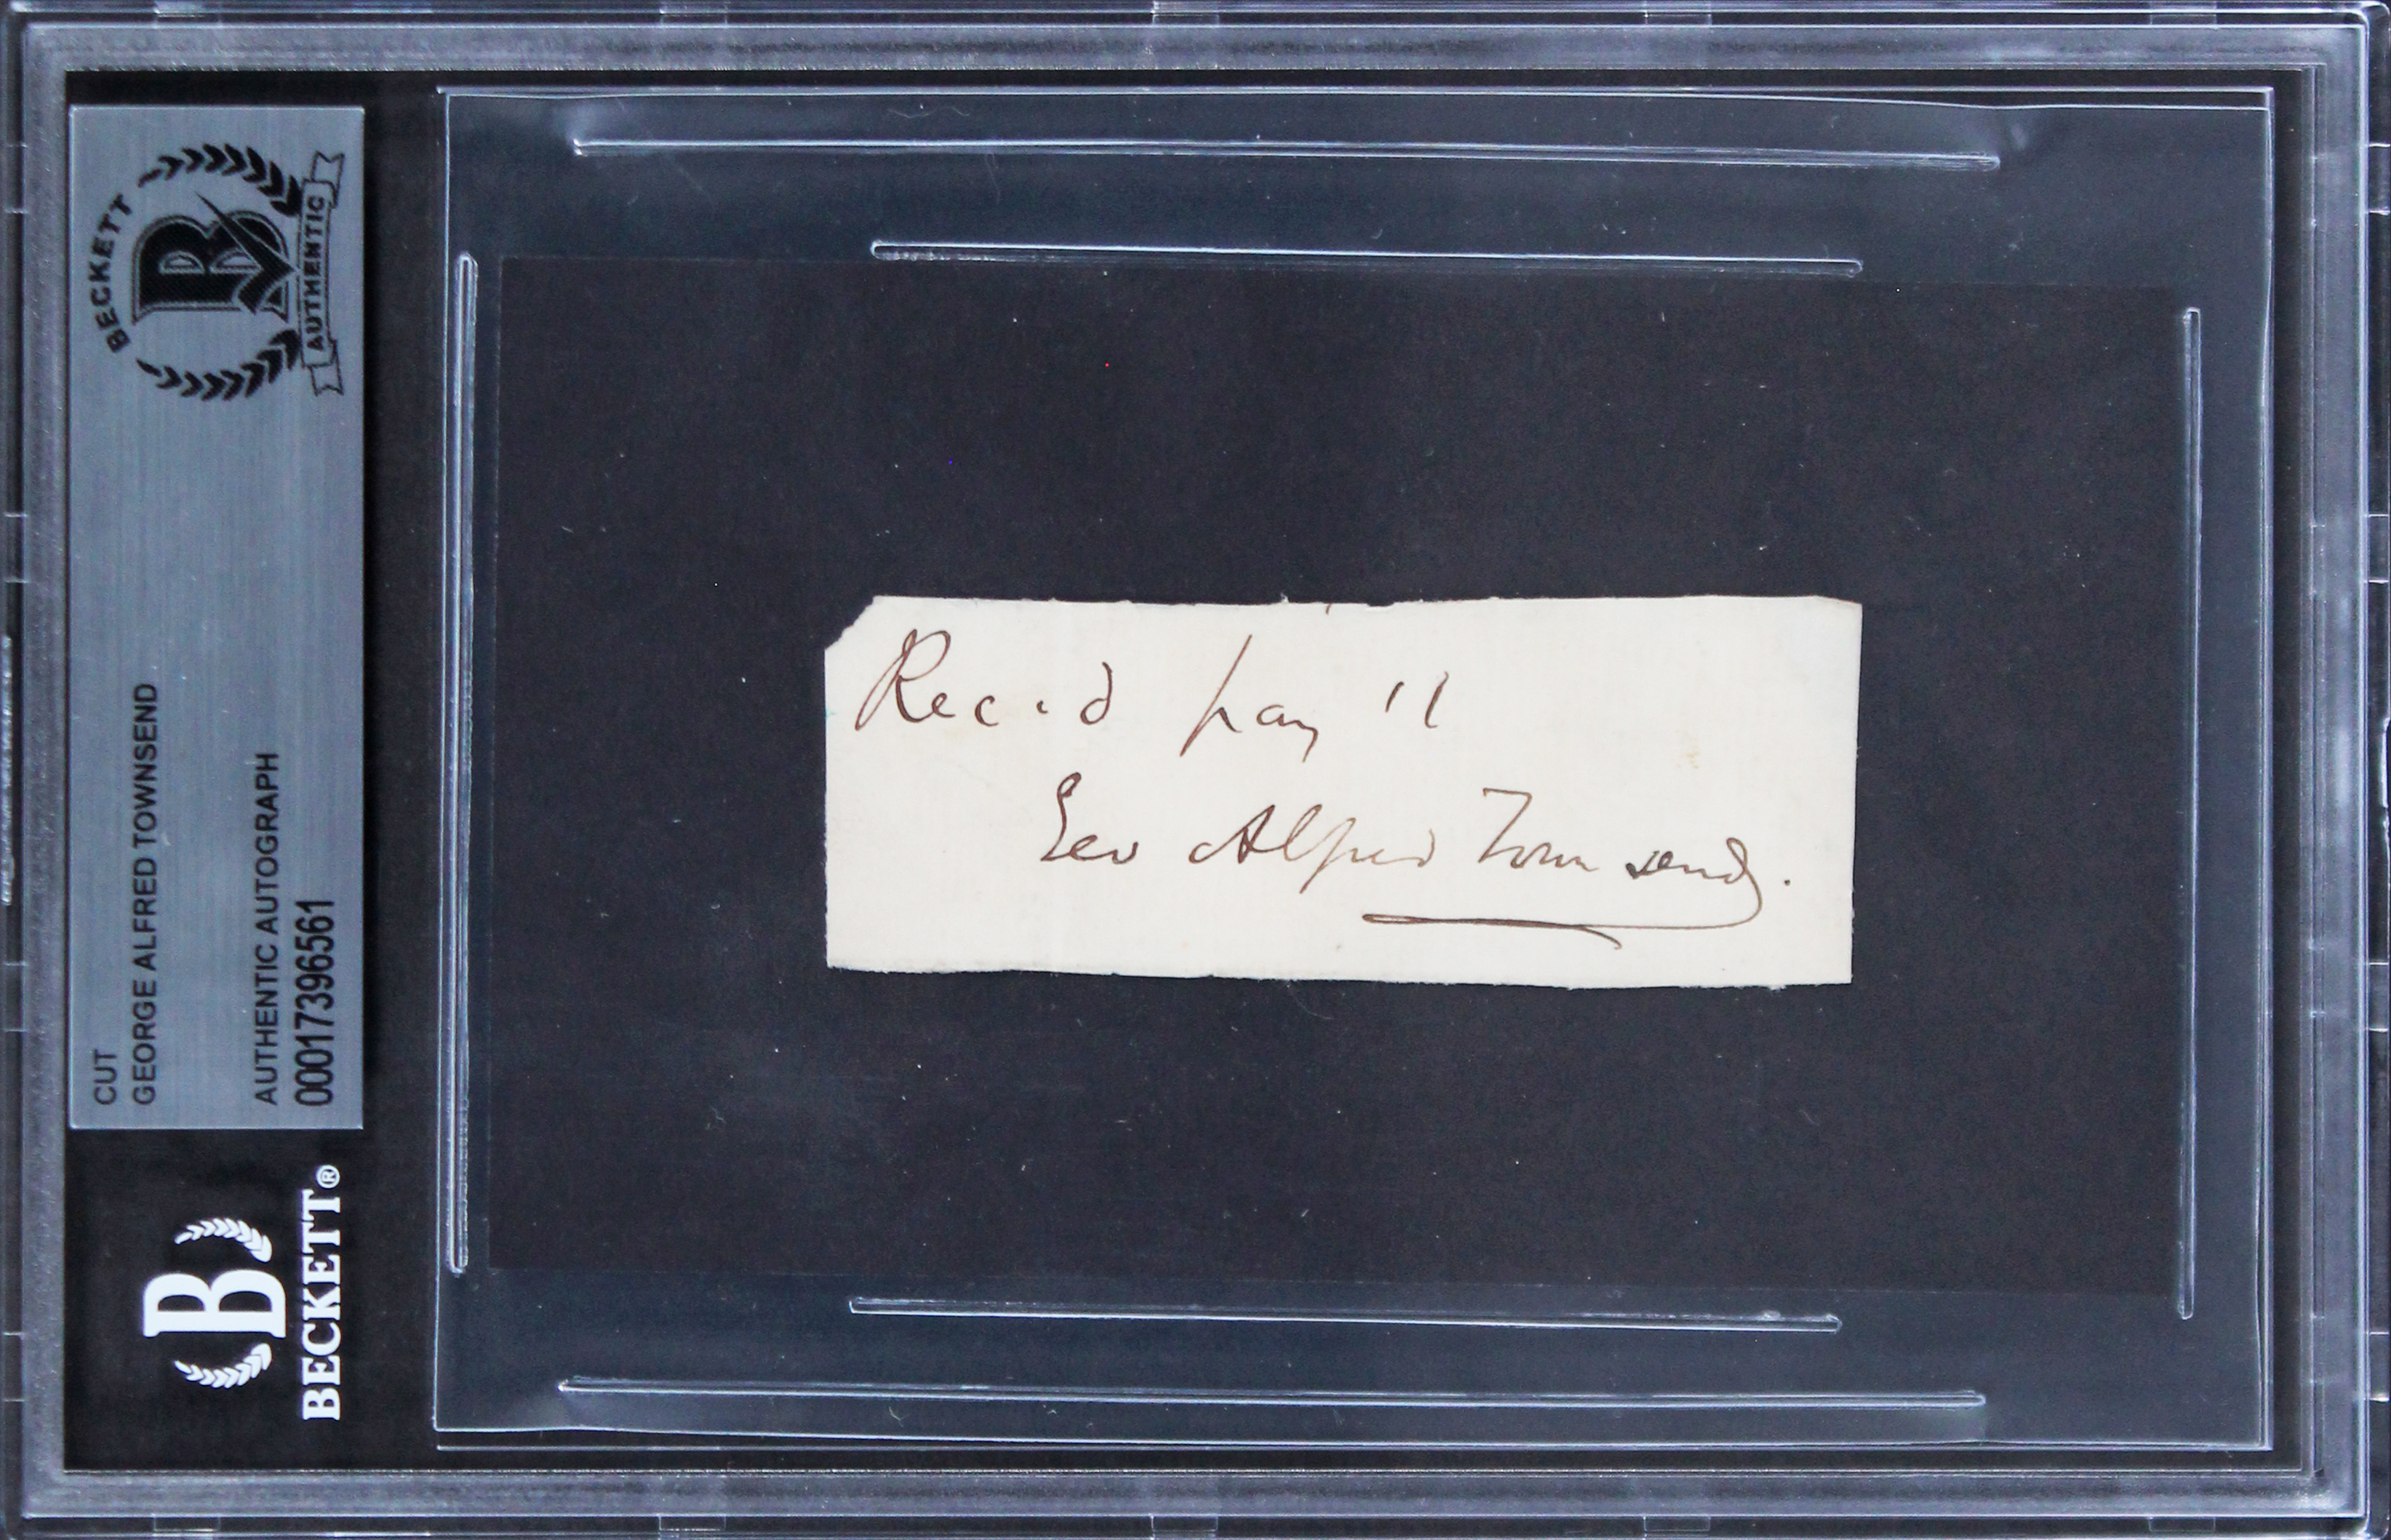 BECKETT
AUTHENTIC
CUT
GEORGE ALFRED TOWNSEND
AUTHENTIC AUTOGRAPH
00017396561
B
BECKETT®
Rec.d pay't
Geo Alfred Townsend.